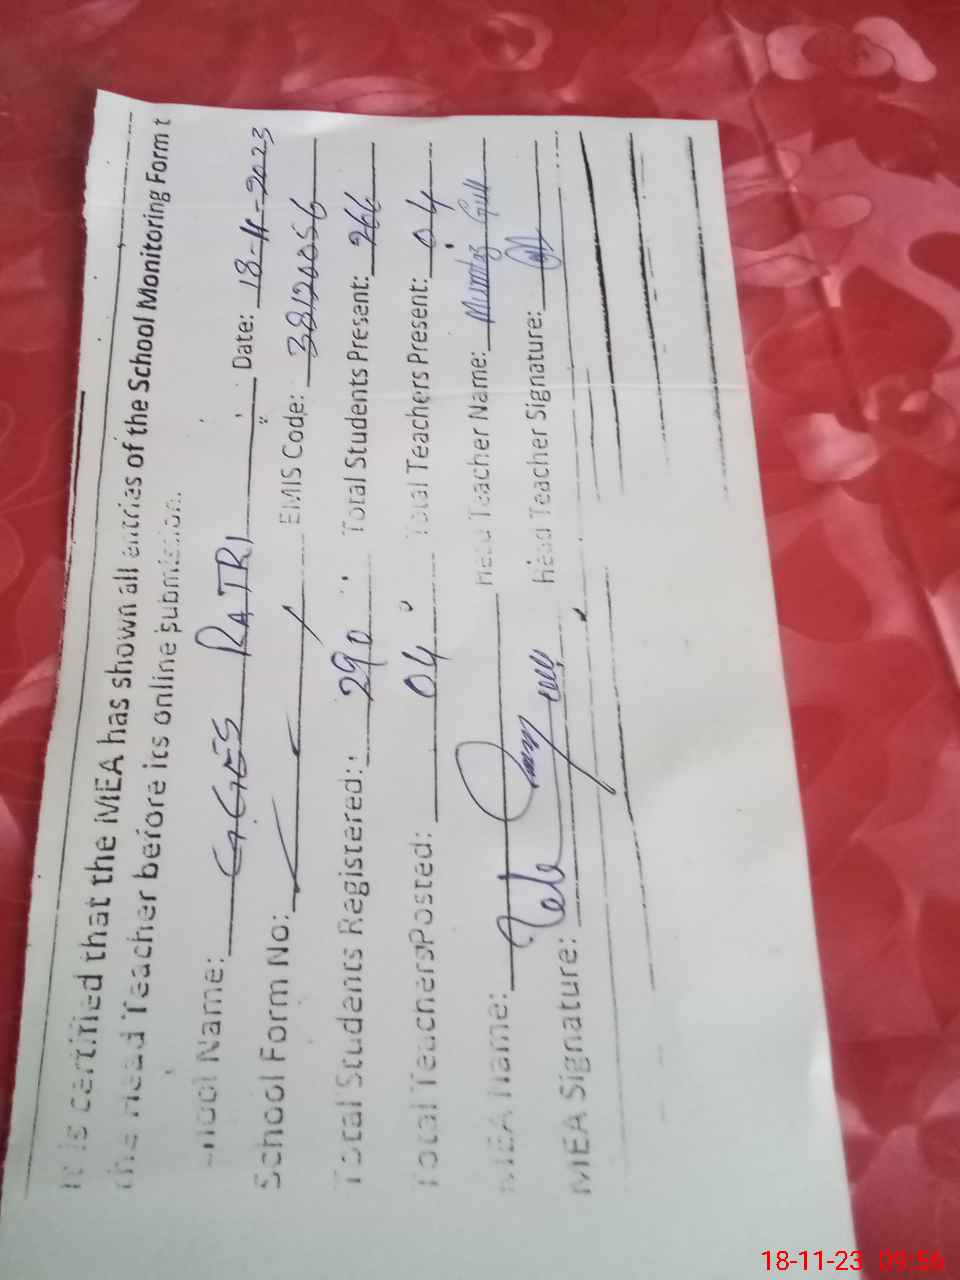 It is certified that the MEA has shown all entries of the School Monitoring Form t
the Head Teacher before its online submission.
School Name: GGES RATRI Date: 18-11-2023
School Form No: EMIS Code: 38120056
Total Students Registered: 290 Total Students Present: 266
Total Teachers Posted: 04 Total Teachers Present: 04
MEA Name: Head Teacher Name: Mumtaz Gull
MEA Signature: Head Teacher Signature:
18-11-23 09:56